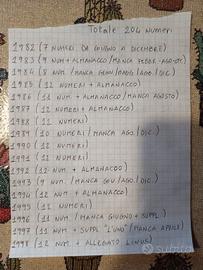 Totale 204 numeri
1982 (7 numeri da giugno a dicembre)
1983 (9 num + almanacco / manca febbr-ago-ott)
1984 (8 num / manca genn / magg / ago / dic.)
1985 (11 numeri + almanacco)
1986 (11 num + almanacco / manca agosto)
1987 (12 numeri + almanacco)
1988 (11 numeri)
1989 (10 numeri / manca ago / dic.)
1990 (12 numeri)
1991 (12 numeri)
1992 (12 num + almanacco)
1993 (9 num / manca giu / ago / dic.)
1994 (12 num + almanacco)
1995 (12 numeri)
1996 (11 num / manca giugno + suppl
1997 (11 num + suppl "Uno" / manca aprile)
1998 (12 num + allegato Linus)
subito